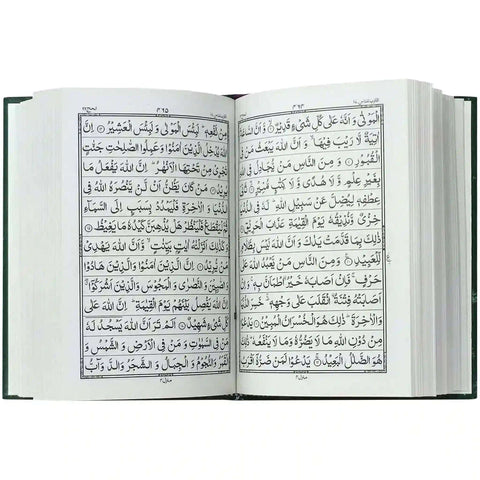 ٣٦٤
الْمَوْتٰى وَ اَنَّهٗ عَلٰى كُلِّ شَیْءٍ قَدِیْرٌ ۙ۝ وَّ اَنَّ السَّاعَةَ
اٰتِیَةٌ لَّا رَیْبَ فِیْهَا ۙ وَ اَنَّ اللّٰهَ یَبْعَثُ مَنْ فِی
الْقُبُوْرِ ۝ وَ مِنَ النَّاسِ مَنْ یُّجَادِلُ فِی اللّٰهِ
بِغَیْرِ عِلْمٍ وَّ لَا هُدًى وَّ لَا كِتٰبٍ مُّنِیْرٍ ۙ۝ ثَانِیَ
عِطْفِهٖ لِیُضِلَّ عَنْ سَبِیْلِ اللّٰهِ ؕ لَهٗ فِی الدُّنْیَا
خِزْیٌ وَّ نُذِیْقُهٗ یَوْمَ الْقِیٰمَةِ عَذَابَ الْحَرِیْقِ ۝
ذٰلِكَ بِمَا قَدَّمَتْ یَدٰكَ وَ اَنَّ اللّٰهَ لَیْسَ بِظَلَّامٍ
لِّلْعَبِیْدِ ۝ وَ مِنَ النَّاسِ مَنْ یَّعْبُدُ اللّٰهَ عَلٰى
حَرْفٍ ۚ فَاِنْ اَصَابَهٗ خَیْرُ اِۨطْمَاَنَّ بِهٖ ۚ وَ اِنْ
اَصَابَتْهُ فِتْنَةُ اِۨنْقَلَبَ عَلٰى وَجْهِهٖ ۚ خَسِرَ الدُّنْیَا
وَ الْاٰخِرَةَ ؕ ذٰلِكَ هُوَ الْخُسْرَانُ الْمُبِیْنُ ۝ یَدْعُوْا
مِنْ دُوْنِ اللّٰهِ مَا لَا یَضُرُّهٗ وَ مَا لَا یَنْفَعُهٗ ؕ ذٰلِكَ
هُوَ الضَّلٰلُ الْبَعِیْدُ ۝ یَدْعُوْا لَمَنْ ضَرُّهٗۤ اَقْرَبُ
منزل ٤
٣٦٥
مِنْ نَّفْعِهٖ ؕ لَبِئْسَ الْمَوْلٰى وَ لَبِئْسَ الْعَشِیْرُ ۝ اِنَّ
اللّٰهَ یُدْخِلُ الَّذِیْنَ اٰمَنُوْا وَ عَمِلُوا الصّٰلِحٰتِ جَنّٰتٍ
تَجْرِیْ مِنْ تَحْتِهَا الْاَنْهٰرُ ؕ اِنَّ اللّٰهَ یَفْعَلُ مَا
یُرِیْدُ ۝ مَنْ كَانَ یَظُنُّ اَنْ لَّنْ یَّنْصُرَهُ اللّٰهُ فِی
الدُّنْیَا وَ الْاٰخِرَةِ فَلْیَمْدُدْ بِسَبَبٍ اِلَى السَّمَآءِ
ثُمَّ لْیَقْطَعْ فَلْیَنْظُرْ هَلْ یُذْهِبَنَّ كَیْدُهٗ مَا یَغِیْظُ ۝
وَ كَذٰلِكَ اَنْزَلْنٰهُ اٰیٰتٍۭ بَیِّنٰتٍ ۙ وَّ اَنَّ اللّٰهَ یَهْدِیْ
مَنْ یُّرِیْدُ ۝ اِنَّ الَّذِیْنَ اٰمَنُوْا وَ الَّذِیْنَ هَادُوْا
وَ الصّٰبِـِٕیْنَ وَ النَّصٰرٰى وَ الْمَجُوْسَ وَ الَّذِیْنَ اَشْرَكُوْۤا ۖ
اِنَّ اللّٰهَ یَفْصِلُ بَیْنَهُمْ یَوْمَ الْقِیٰمَةِ ؕ اِنَّ اللّٰهَ عَلٰى
كُلِّ شَیْءٍ شَهِیْدٌ ۝ اَلَمْ تَرَ اَنَّ اللّٰهَ یَسْجُدُ لَهٗ
مَنْ فِی السَّمٰوٰتِ وَ مَنْ فِی الْاَرْضِ وَ الشَّمْسُ وَ
الْقَمَرُ وَ النُّجُوْمُ وَ الْجِبَالُ وَ الشَّجَرُ وَ الدَّوَآبُّ
منزل ٤